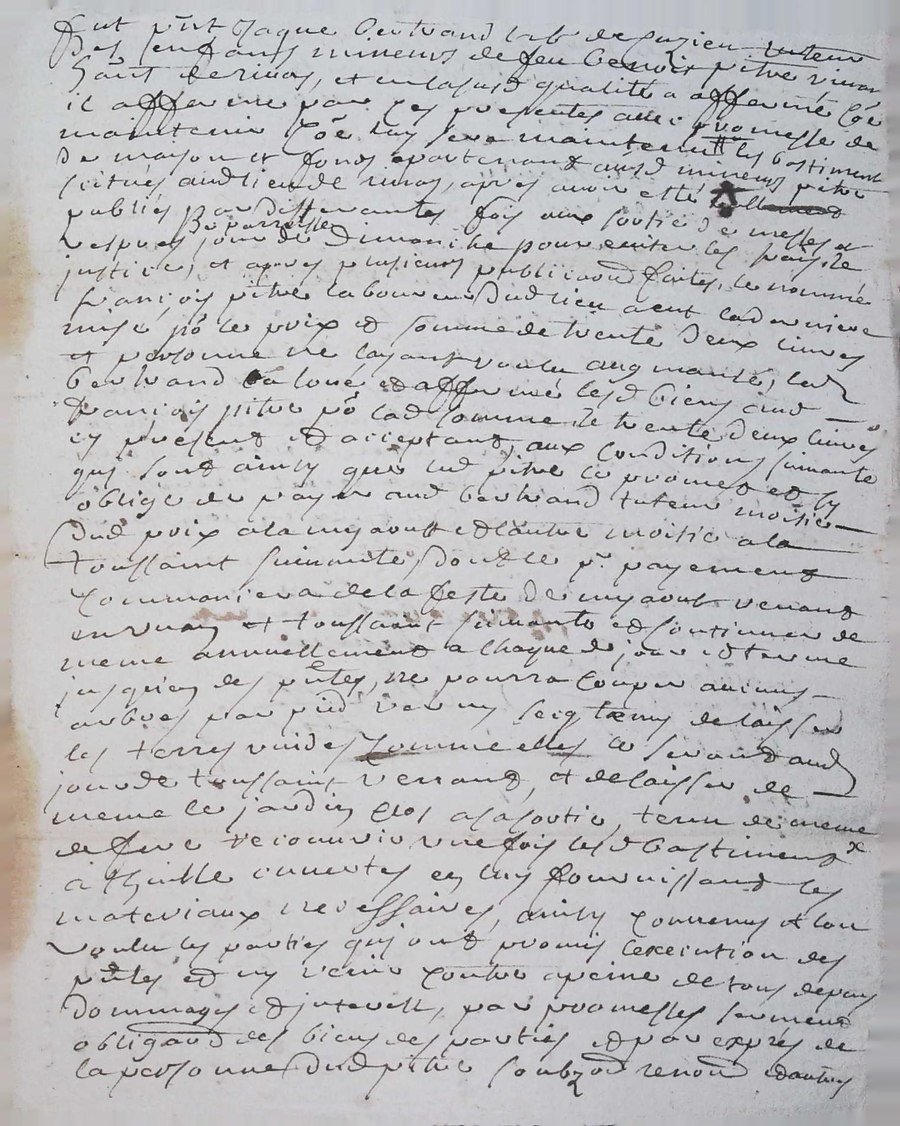 fut pñt Jaque bertrand lab de tuteur
des enfants mineurs de feu benoit pitre vivant
et en lasusd qualité a affermé Cõe
il afferme par ces presentes avec promesse de
maintenir Cõe luy sera maintenu les bastiments
de maison et fonds apartenant ausd mineurs pitre
scitués audlieu de apres avoir esté
publies par differantes fois aux sorties de messes et
vespres jour de dimanche pour eviter les frais de
justice, et apres plusieurs publicaõns faites, le nommé
françois pitre laboureur dudlieu a eut la derniere
mise põ le prix et somme de trente deux livres
et personne ne layant voulu augmanté, led
bertrand a loué et affermé lesd biens aud
françois pitre põ lad somme de trente deux livres
cy present et acceptant, aux conditions suivante
qui sont ainsy que led pitre ce promet et sy
oblige de payer aud bertrand tuteur moitie
dud prix a la my aoust et lautre moitie a la
toussaint suivante, dont le pr. payement
commancera de la feste de my aoust venant
en un an et toussaint suivante et continuer de
meme annuellement a chaque de jour et terme
jusqu'en des pñtes, ne pourra couper aucuns
arbres par pied vers ny secq tenu de laisser
les terres vuides comme elles ce seront aud
jour de toussaint venant, et de laisser de
meme le jardin clos a sa sortie, tenu de meme
de faire recouvrir une fois lesd bastiments
a thuille couvertes en luy fournissant les
materiaux necessaires, ainsy convenu et lon
voulu les parties qui ont promis lexecution des
pñtes et ny venir contre a peine de tous depans
dommages et interest, par promesses serment
obligaõn des biens des parties et par exprés de
la personne dud pitre soubz renoñ et autres